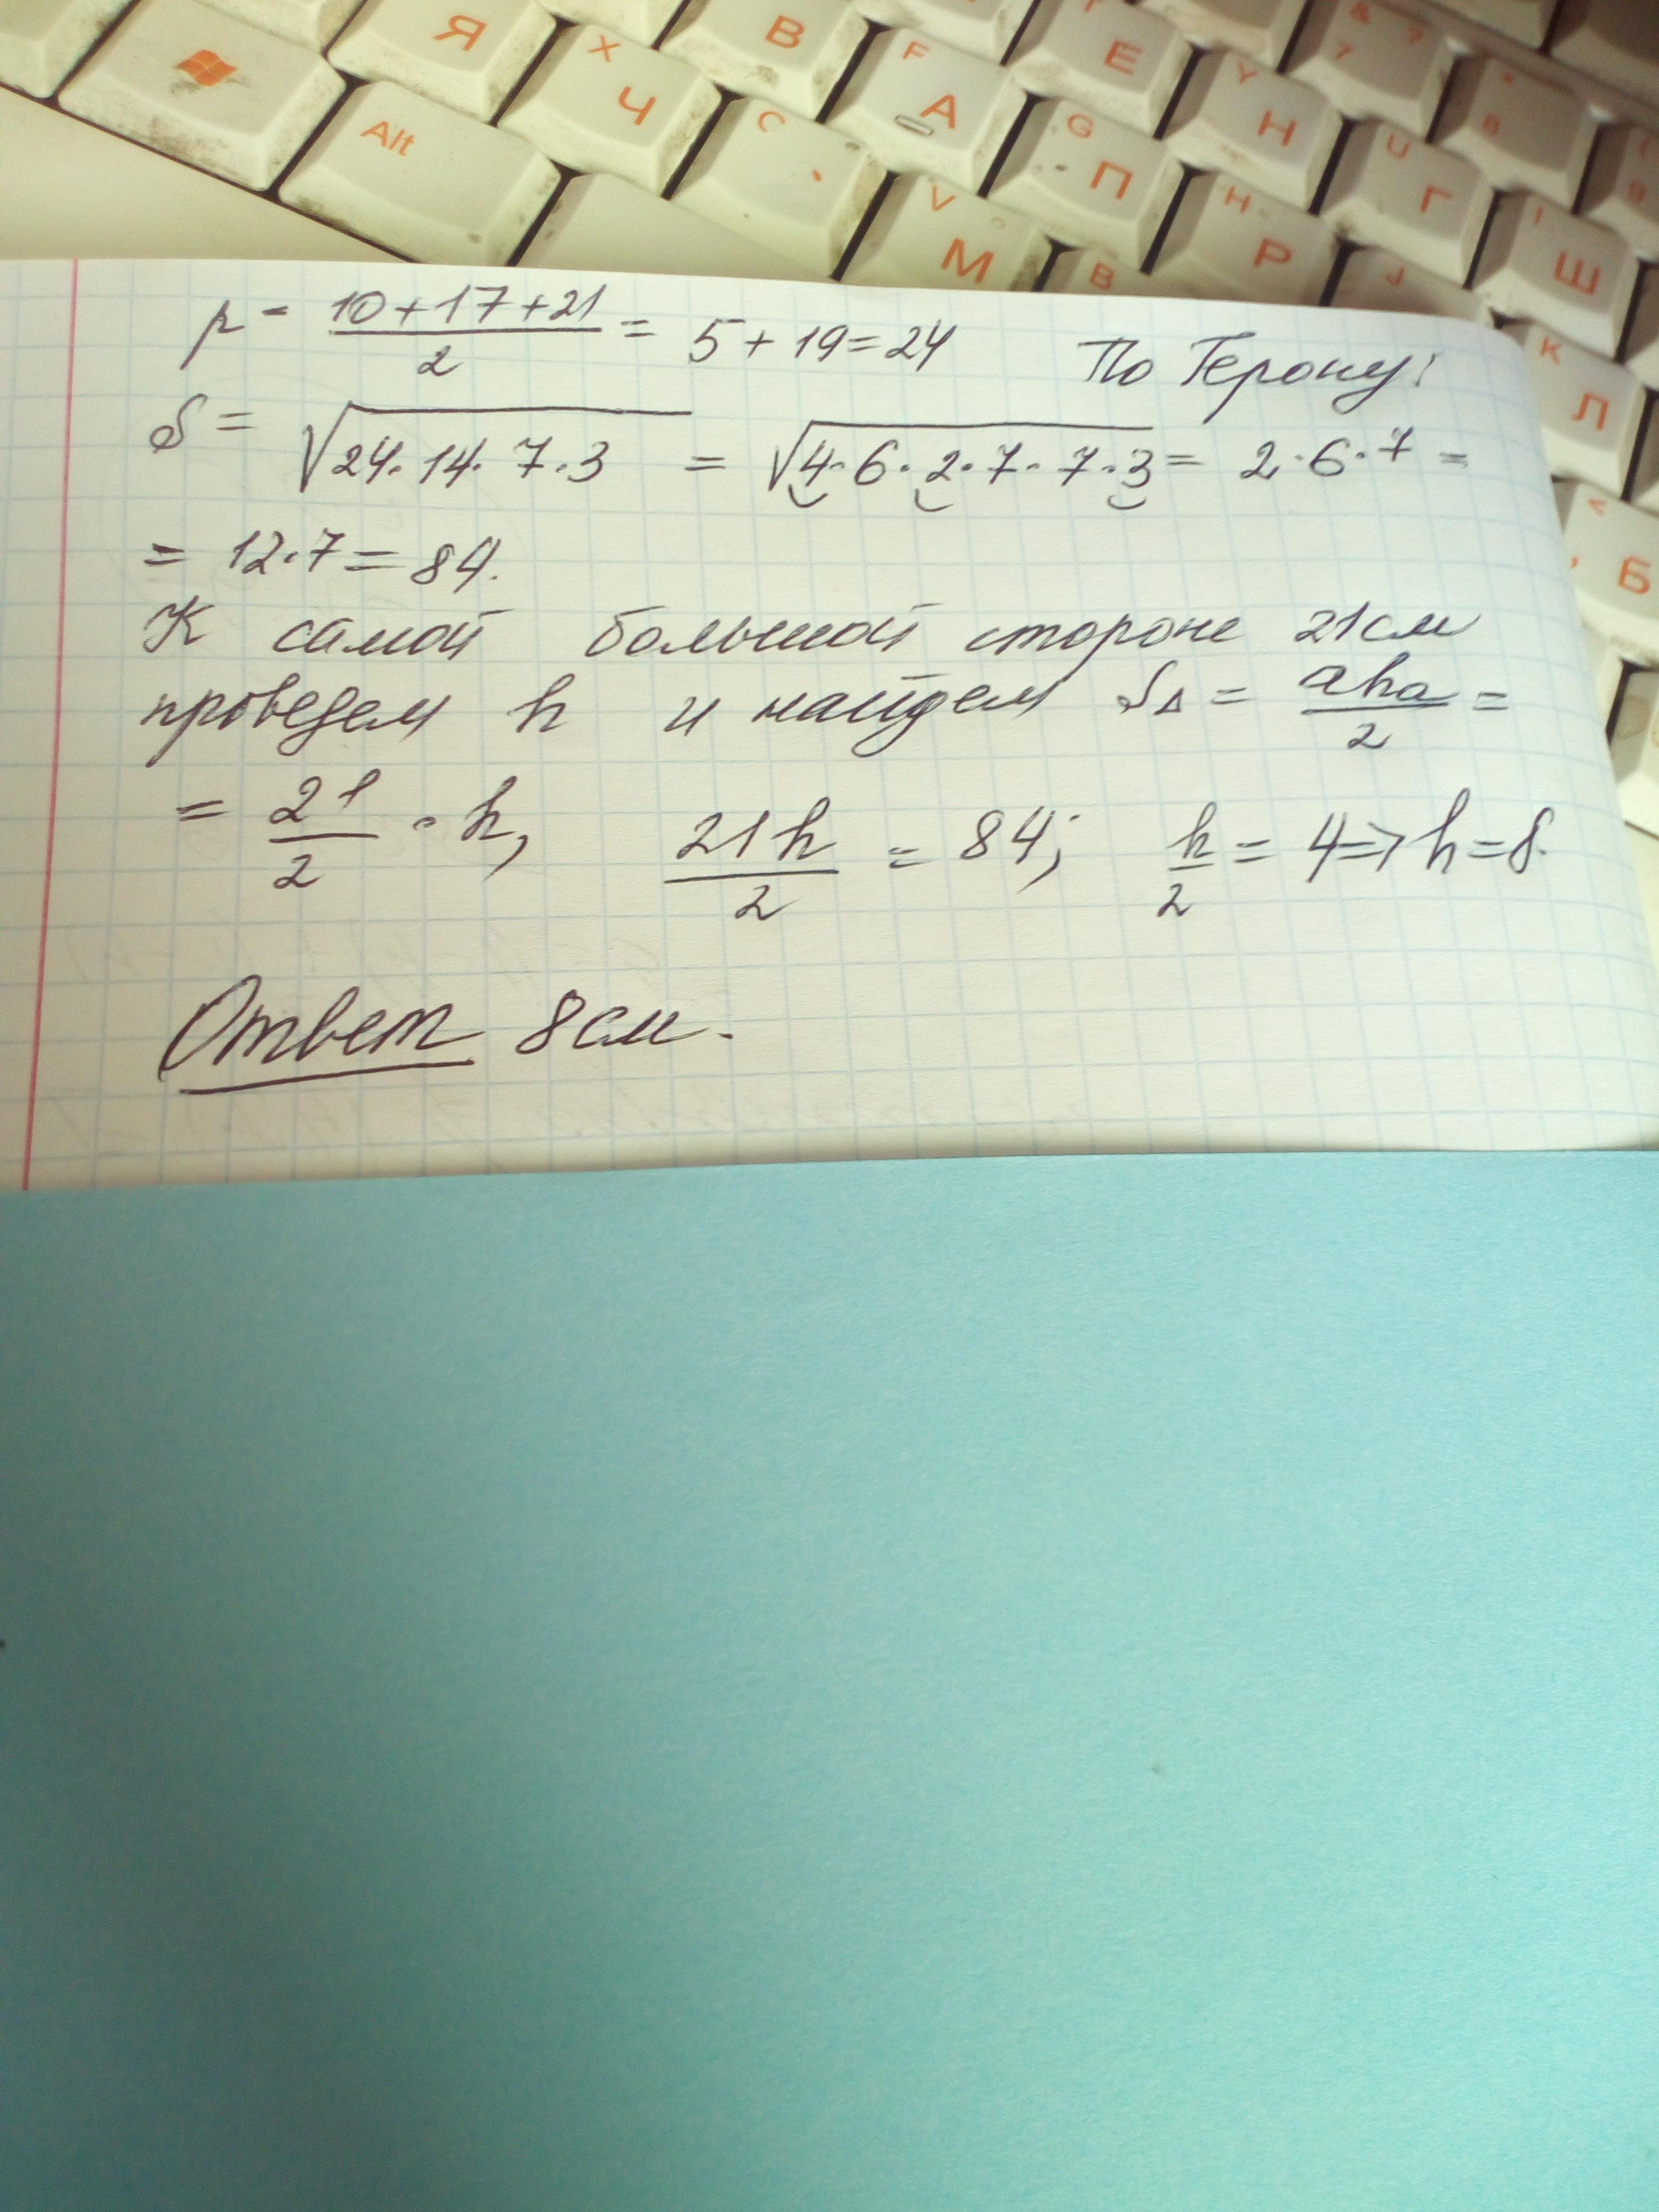 Я Х Ч В F А Е Y Н & 7 ? * 8 ( 9
Alt С V М G П B H Р U Г J I Ш К Л < Б
p = 10+17+21/2 = 5+19=24 По Герону:
S = √24·14·7·3 = √4·6·2·7·7·3 = 2·6·7 =
= 12·7=84.
К самой большой стороне 21см
проведем h и найдем S△ = aha/2 =
= 21/2 · h, 21h/2 = 84; h/2 = 4 => h=8.
Ответ 8см.